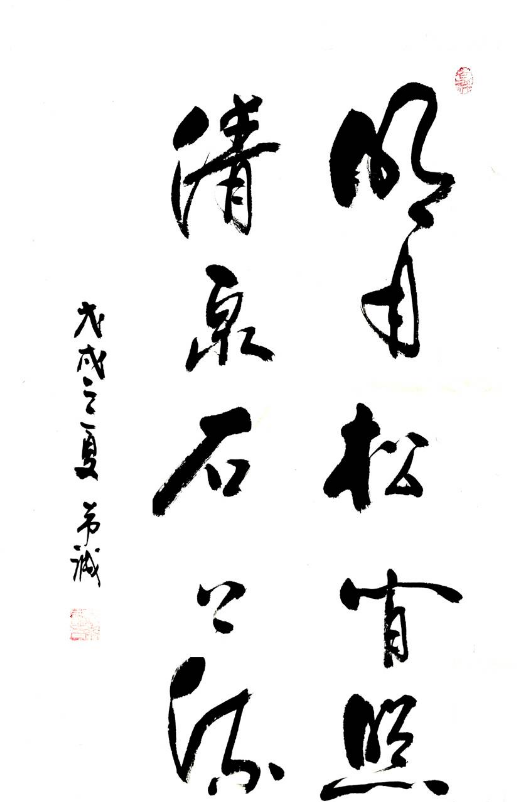 明月松间照
清泉石上流
戊戌之夏